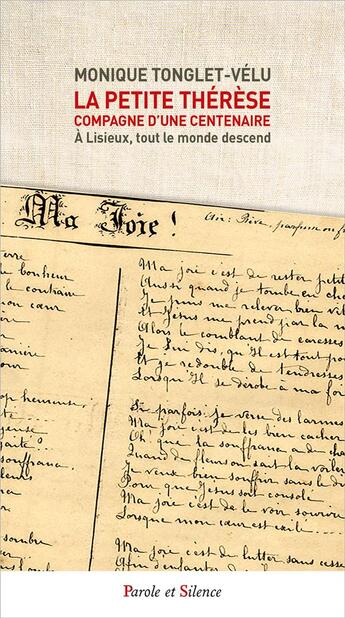 MONIQUE TONGLET-VÉLU
LA PETITE THÉRÈSE
COMPAGNE D'UNE CENTENAIRE
À Lisieux, tout le monde descend
Ma Joie !
Air : Rêve, parfum ou
bonheur
le contraire
mon cœur
Ma joie c'est de rester petite
Aussi quand je tombe en che
Je puis me relever bien vite
Et Jésus me prend par la m
Alors le comblant de caresses
Je Lui dis, qu'Il est tout pour
Et je redouble de tendresses
Lorsqu'Il se dérobe à ma foi
manière
heureuse
souffrance
sombre
Si parfois je verse des larmes
Ma joie c'est de les bien cacher
Oh ! que la souffrance a de cha
Quand de fleurs on sait la voiler
Je veux bien souffrir sans le di
Pour que Jésus soit consolé
Ma joie c'est de le voir sourire
Lorsque mon cœur est exilé ....
Ma joie c'est de lutter sans cesse
Afin d'enfanter
Parole et Silence